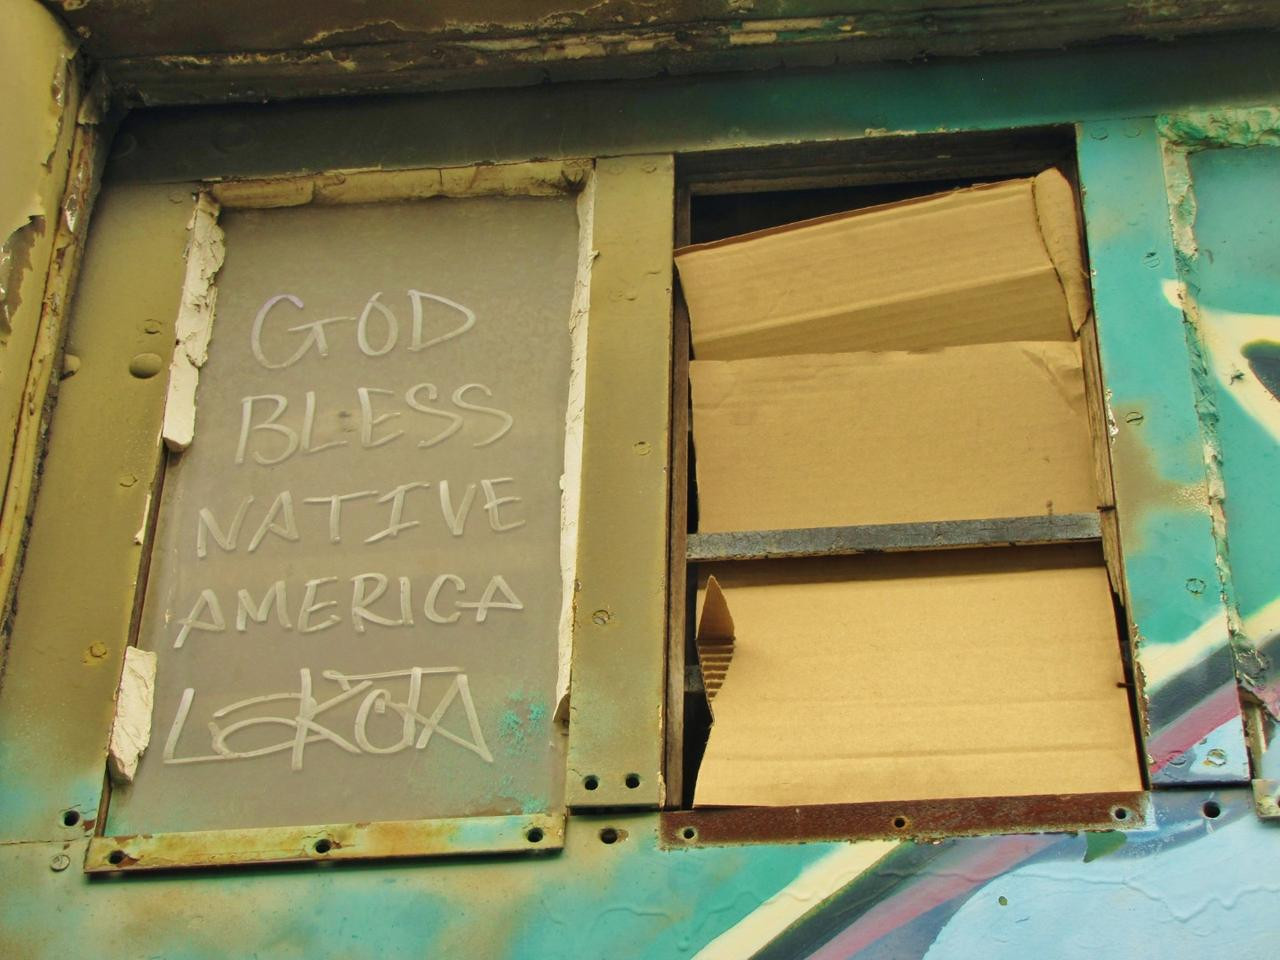 GOD
BLESS
NATIVE
AMERICA
LAKOTA